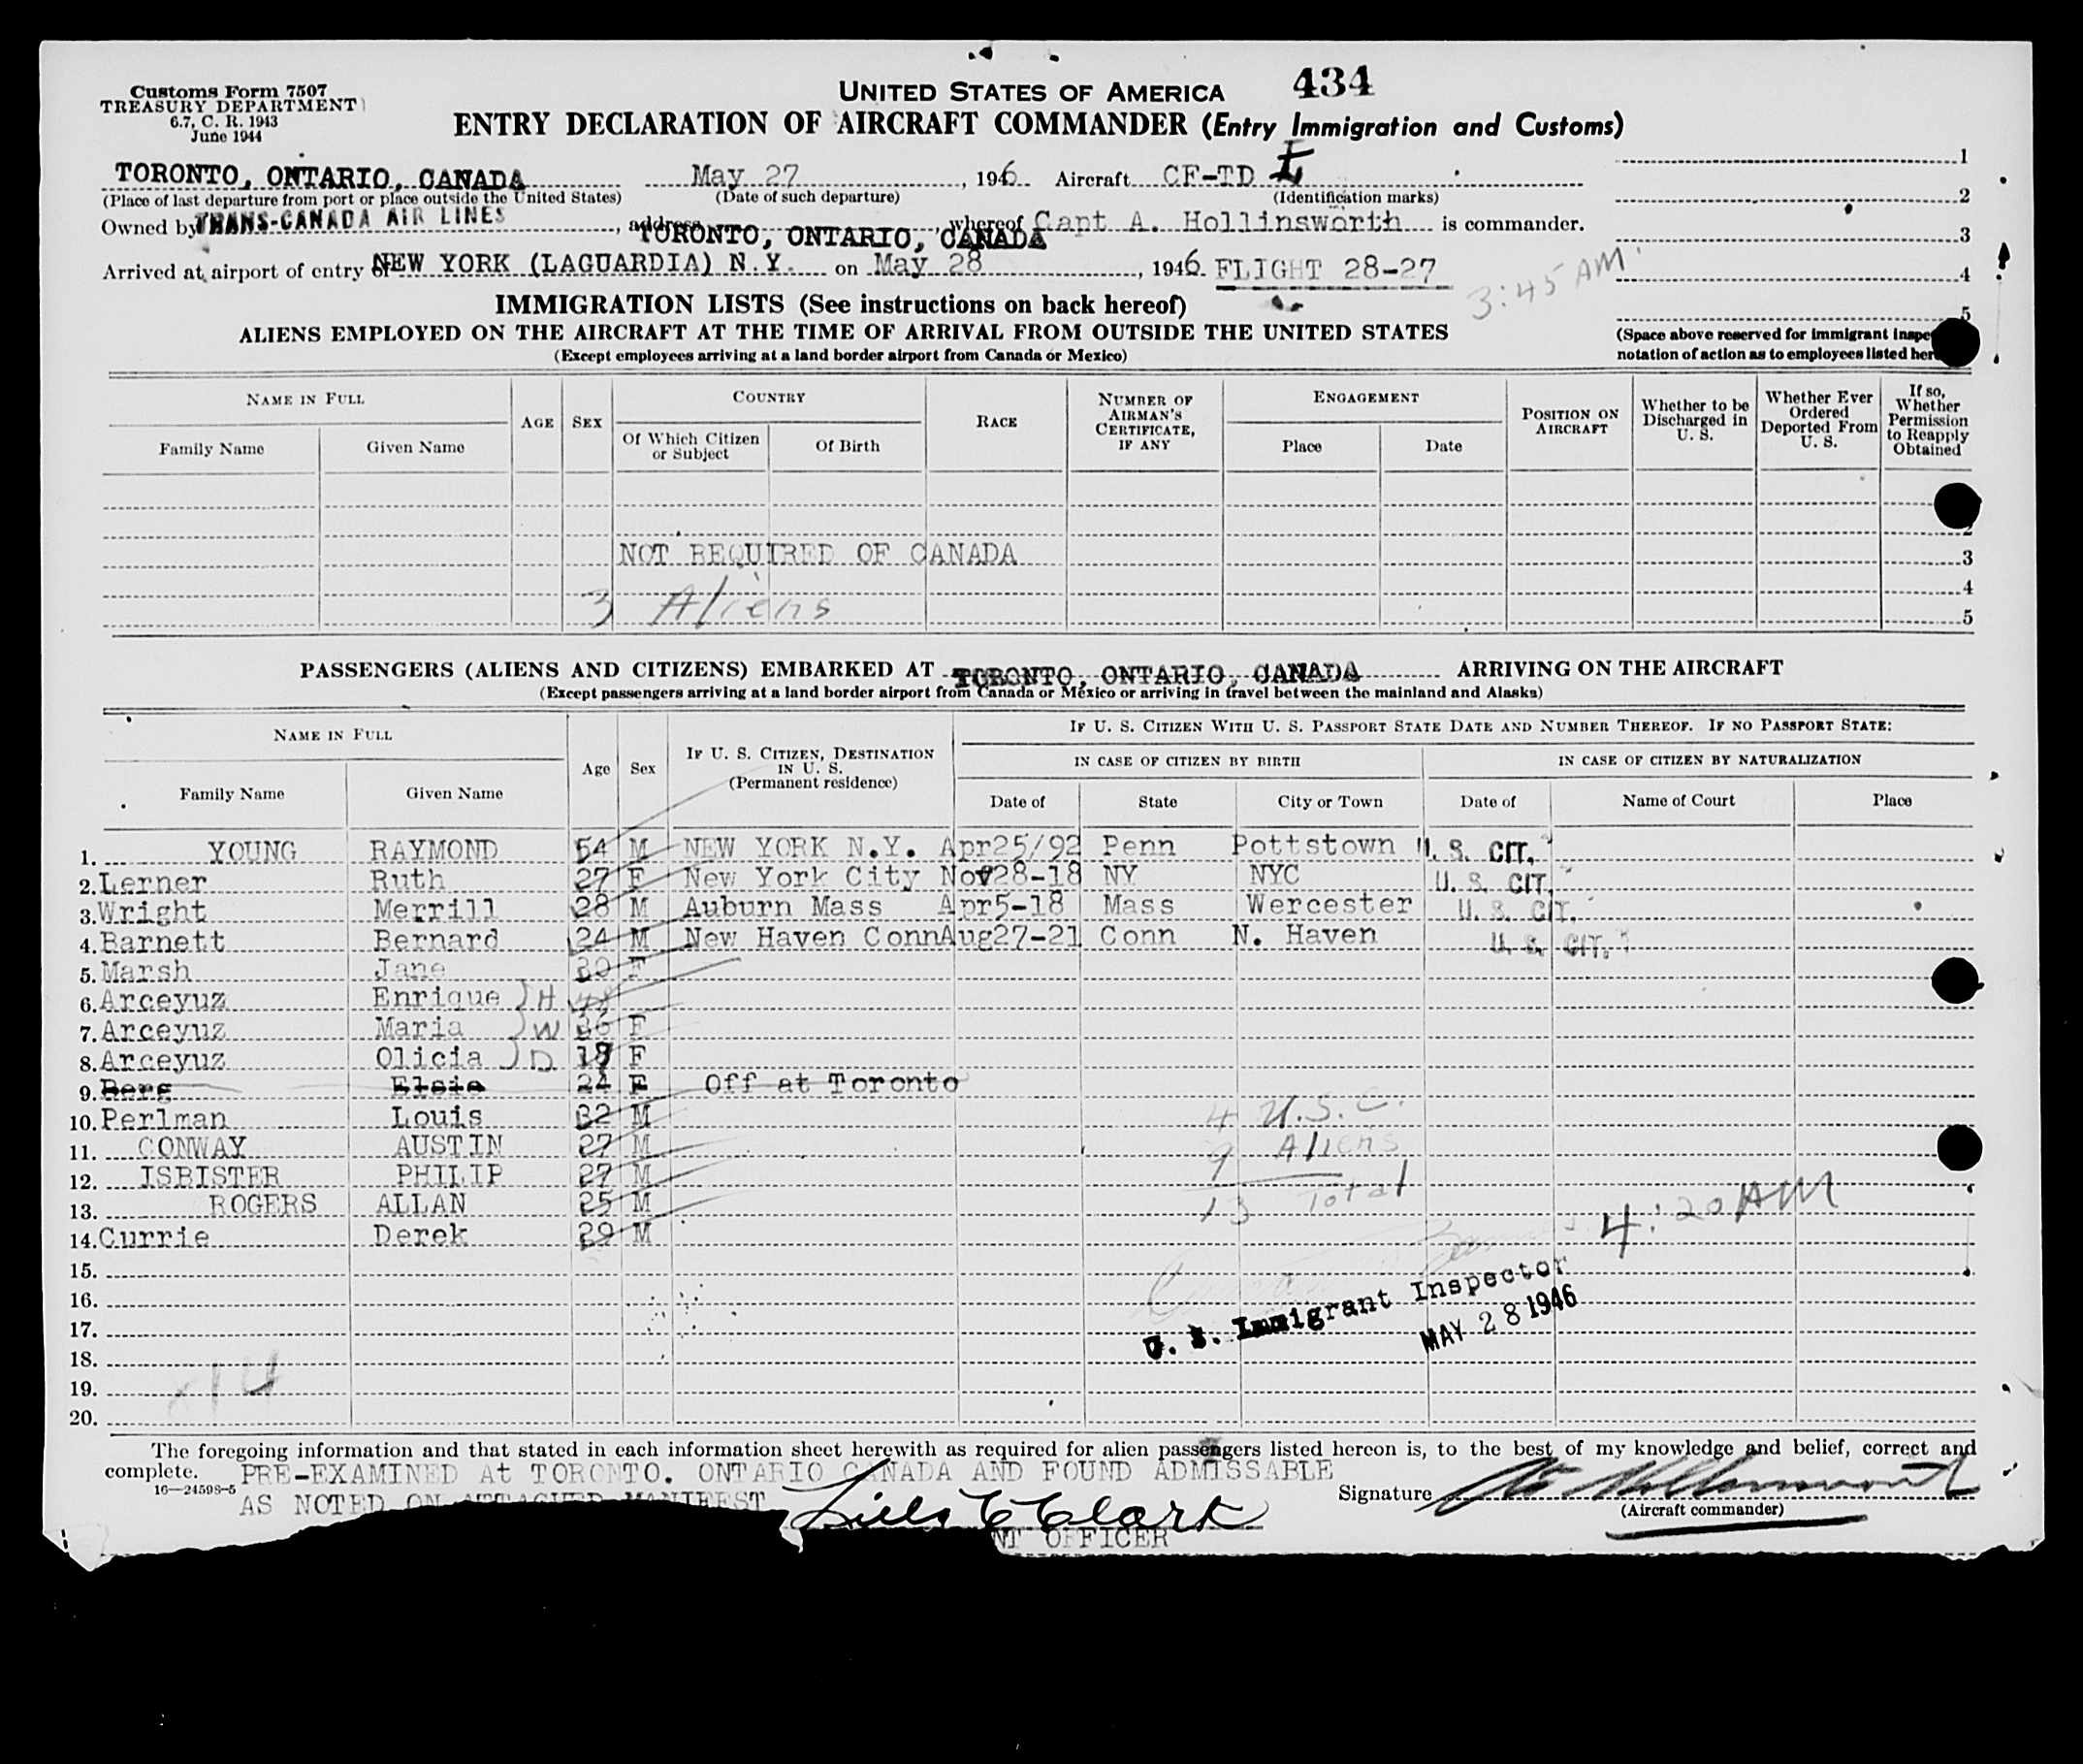 Customs Form 7507
TREASURY DEPARTMENT
6.7, C. R. 1943
June 1944
UNITED STATES OF AMERICA 434
ENTRY DECLARATION OF AIRCRAFT COMMANDER (Entry Immigration and Customs)
TORONTO, ONTARIO, CANADA May 27, 1946 Aircraft CF-TD
(Place of last departure from port or place outside the United States) (Date of such departure) (Identification marks)
Owned by TRANS-CANADA AIR LINES, address TORONTO, ONTARIO, CANADA, whereof Capt A. Hollinsworth is commander.
Arrived at airport of entry of NEW YORK (LAGUARDIA) N.Y. on May 28, 1946 FLIGHT 28-27 3:45 AM
1
2
3
4
5
IMMIGRATION LISTS (See instructions on back hereof)
ALIENS EMPLOYED ON THE AIRCRAFT AT THE TIME OF ARRIVAL FROM OUTSIDE THE UNITED STATES
(Except employees arriving at a land border airport from Canada or Mexico)
(Space above reserved for immigrant inspe
notation of action as to employees listed her
NAME IN FULL
Family Name Given Name
AGE SEX
COUNTRY
Of Which Citizen or Subject Of Birth
RACE
NUMBER OF AIRMAN'S CERTIFICATE, IF ANY
ENGAGEMENT
Place Date
POSITION ON AIRCRAFT
Whether to be Discharged in U. S.
Whether Ever Ordered Deported From U. S.
If so, Whether Permission to Reapply Obtained
2
NOT REQUIRED OF CANADA 3
4
3 Aliens 5
PASSENGERS (ALIENS AND CITIZENS) EMBARKED AT TORONTO, ONTARIO, CANADA ARRIVING ON THE AIRCRAFT
(Except passengers arriving at a land border airport from Canada or Mexico or arriving in travel between the mainland and Alaska)
NAME IN FULL
Family Name Given Name
Age Sex
IF U. S. CITIZEN, DESTINATION IN U. S. (Permanent residence)
IF U. S. CITIZEN WITH U. S. PASSPORT STATE DATE AND NUMBER THEREOF. IF NO PASSPORT STATE:
IN CASE OF CITIZEN BY BIRTH IN CASE OF CITIZEN BY NATURALIZATION
Date of State City or Town Date of Name of Court Place
1. YOUNG RAYMOND 54 M NEW YORK N.Y. Apr25/92 Penn Pottstown U. S. CIT.
2. Lerner Ruth 27 F New York City Nov28-18 NY NYC U. S. CIT.
3. Wright Merrill 28 M Auburn Mass Apr5-18 Mass Wercester U. S. CIT.
4. Barnett Bernard 24 M New Haven Conn Aug27-21 Conn N. Haven U. S. CIT.
5. Marsh Jane 30 F
6. Arceyuz Enrique H
7. Arceyuz Maria W 36 F
8. Arceyuz Olicia D F
9. Berg Elsie 24 F Off at Toronto
10. Perlman Louis 32 M 4 U.S.C.
11. CONWAY AUSTIN 27 M 9 Aliens
12. ISBISTER PHILIP 27 M 13 Total
13. ROGERS ALLAN 25 M 4:20 AM
14. Currie Derek 29 M
15.
16. U. S. Immigrant Inspector
17. MAY 28 1946
18.
19. 14
20.
The foregoing information and that stated in each information sheet herewith as required for alien passengers listed hereon is, to the best of my knowledge and belief, correct and
complete. PRE-EXAMINED At TORONTO. ONTARIO CANADA AND FOUND ADMISSABLE
16—24598-5 AS NOTED ON ATTACHED MANIFEST
Signature
(Aircraft commander)
Clark
NT OFFICER